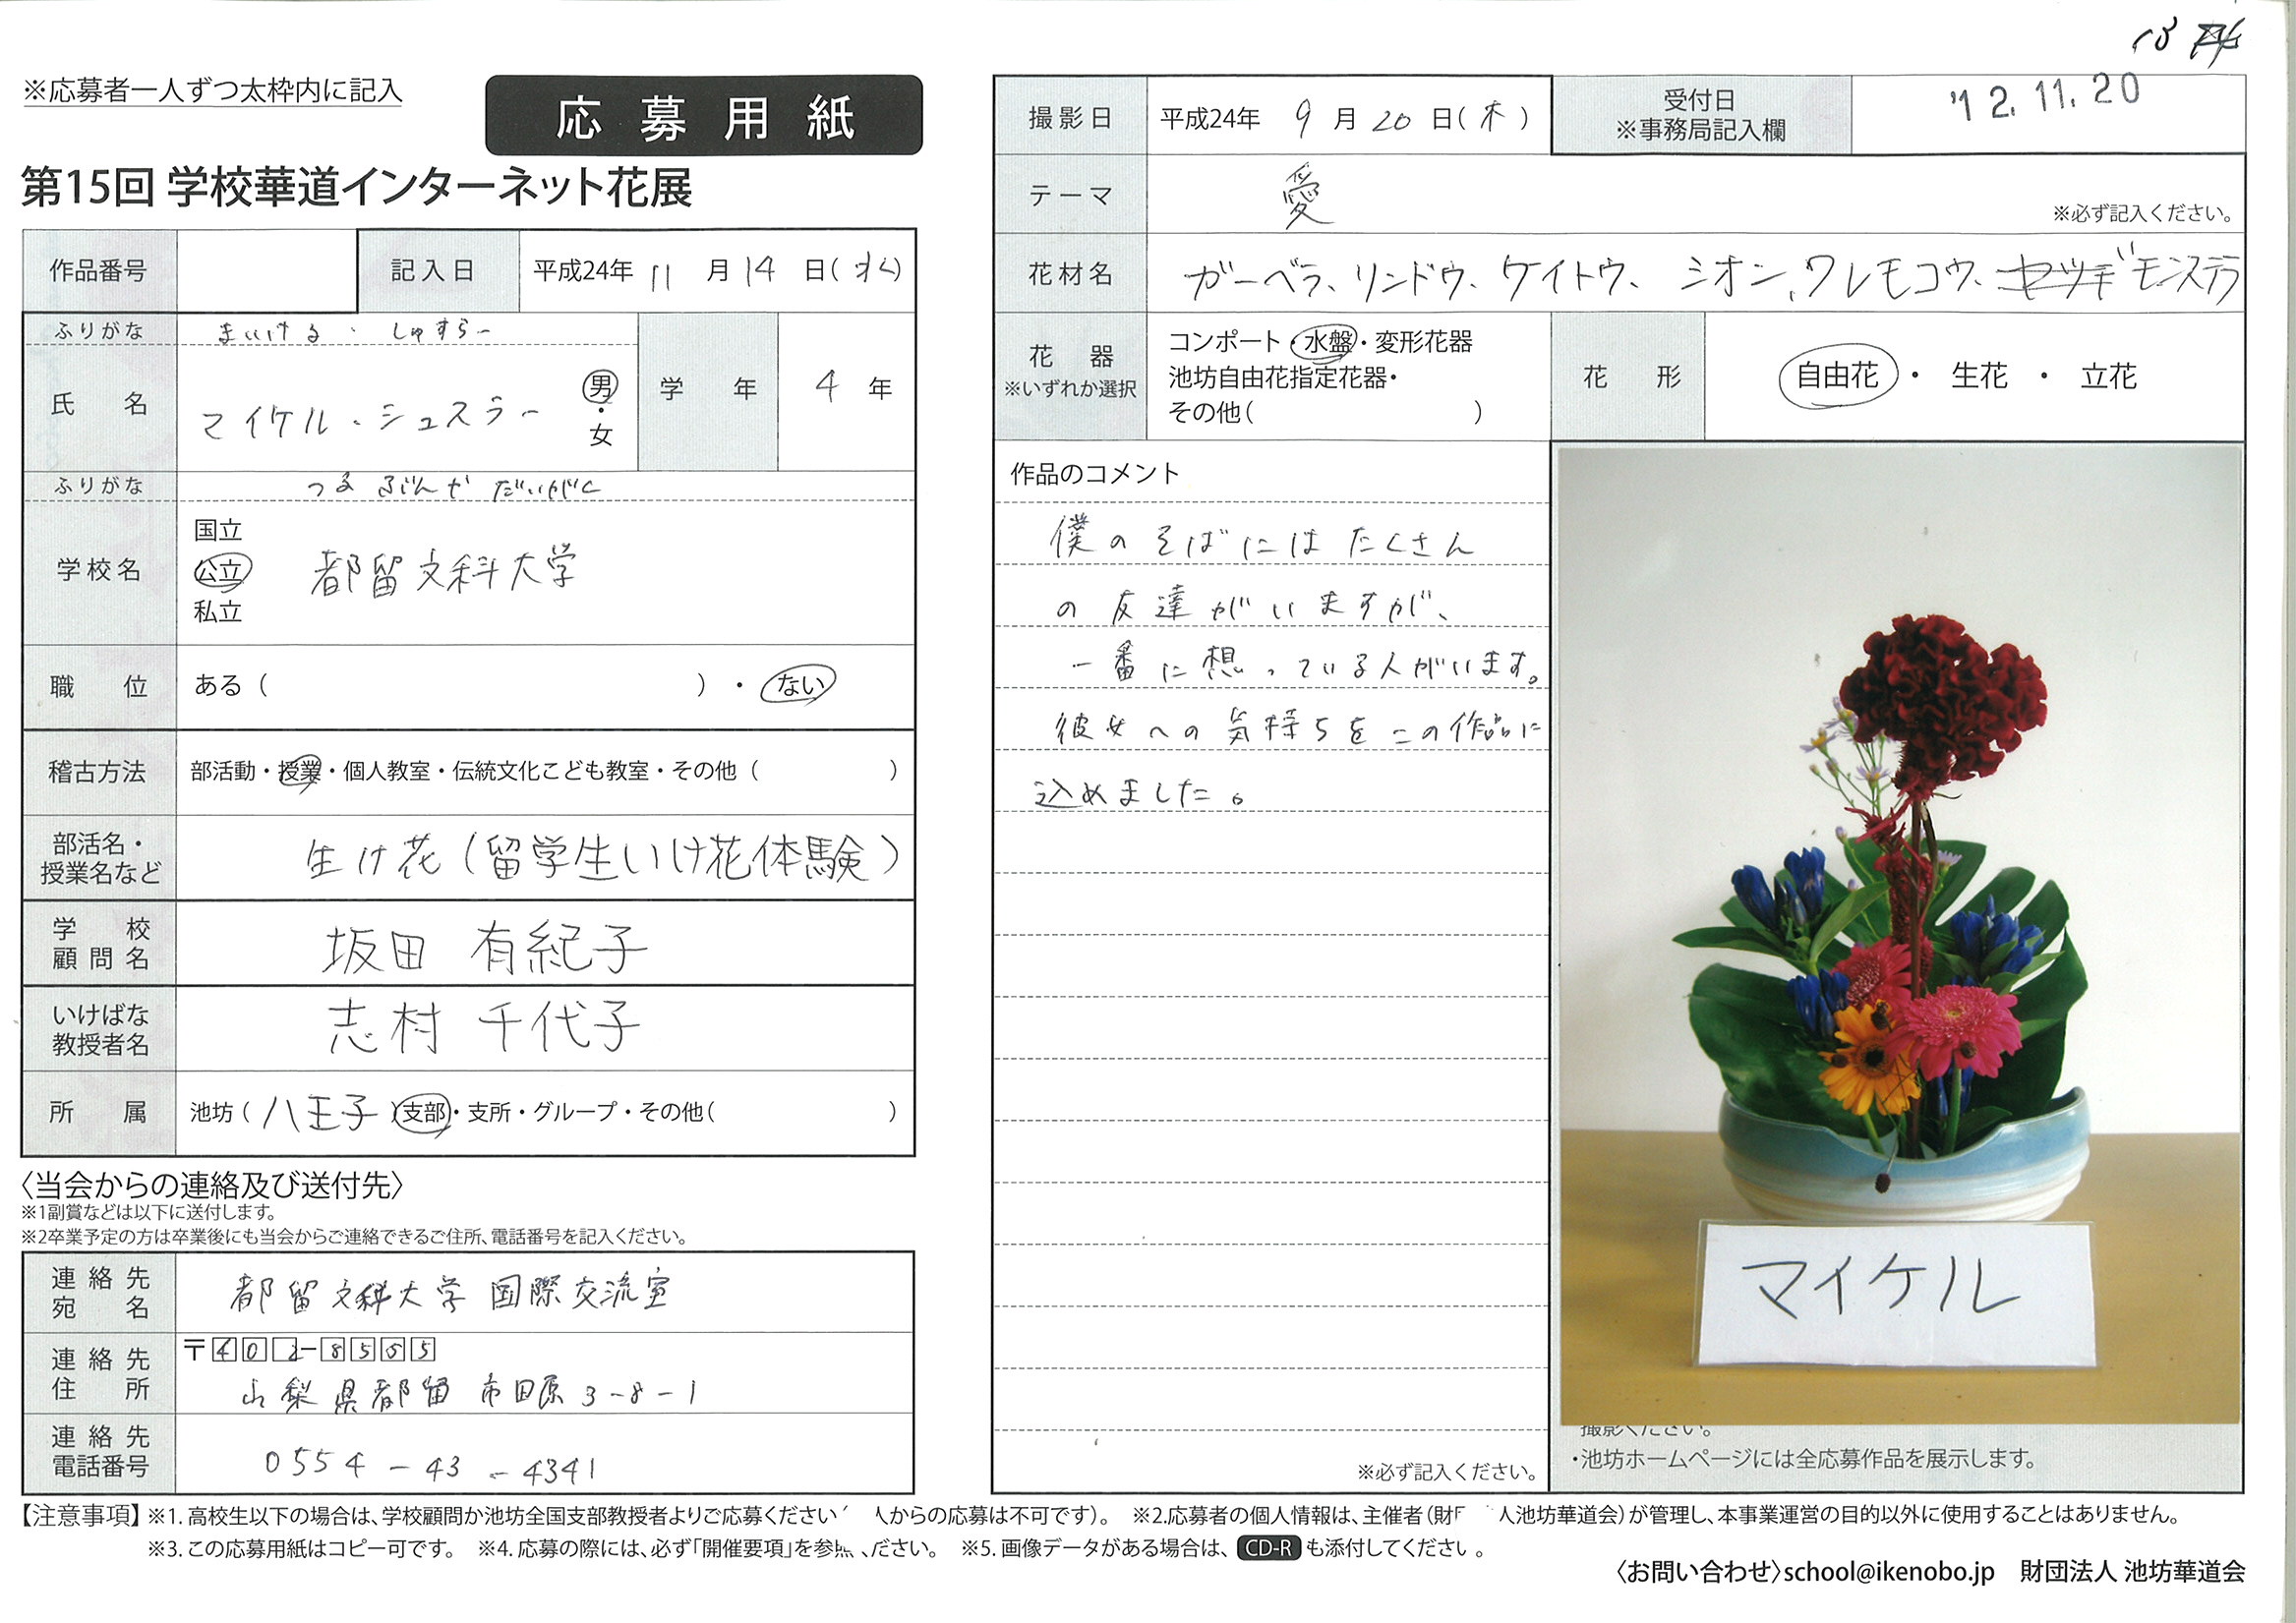 ※応募者一人ずつ太枠内に記入
応募用紙
第15回 学校華道インターネット花展
作品番号
記入日 平成24年 11月14日(水)
ふりがな まいける・しゅすらー
氏名 マイケル・シュスラー 男・女
学年 4年
ふりがな つるぶんかだいがく
学校名 国立 公立 私立 都留文科大学
職位 ある( )・ない
稽古方法 部活動・授業・個人教室・伝統文化こども教室・その他( )
部活名・授業名など 生け花(留学生いけ花体験)
学校顧問名 坂田 有紀子
いけばな教授者名 志村 千代子
所属 池坊(八王子)支部・支所・グループ・その他( )
〈当会からの連絡及び送付先〉
※1副賞などは以下に送付します。
※2卒業予定の方は卒業後にも当会からご連絡できるご住所、電話番号を記入ください。
連絡先宛名 都留文科大学 国際交流室
連絡先住所 〒402-8555
山梨県都留市田原3-8-1
連絡先電話番号 0554-43-4341
撮影日 平成24年 9月20日(木)
受付日
※事務局記入欄
'12.11.20
テーマ 愛
※必ず記入ください。
花材名 ガーベラ、リンドウ、ケイトウ、シオン、ワレモコウ、モンステラ
花器
※いずれか選択
コンポート・水盤・変形花器
池坊自由花指定花器・
その他( )
花形 自由花・生花・立花
作品のコメント
僕のそばにはたくさん
の友達がいますが、
一番に想っている人がいます。
彼女への気持ちをこの作品に
込めました。
※必ず記入ください。
マイケル
撮影ください。
・池坊ホームページには全応募作品を展示します。
【注意事項】※1.高校生以下の場合は、学校顧問か池坊全国支部教授者よりご応募ください 人からの応募は不可です)。 ※2.応募者の個人情報は、主催者(財 人池坊華道会)が管理し、本事業運営の目的以外に使用することはありません。
※3.この応募用紙はコピー可です。 ※4.応募の際には、必ず「開催要項」を参照ください。 ※5.画像データがある場合は、CD-Rも添付してください。
〈お問い合わせ〉school@ikenobo.jp 財団法人 池坊華道会